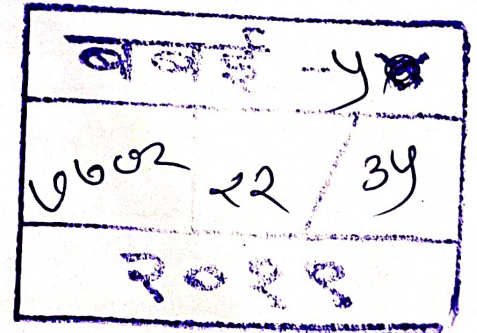 बबई - ५
७७७२ २२ / ३५
२०१९